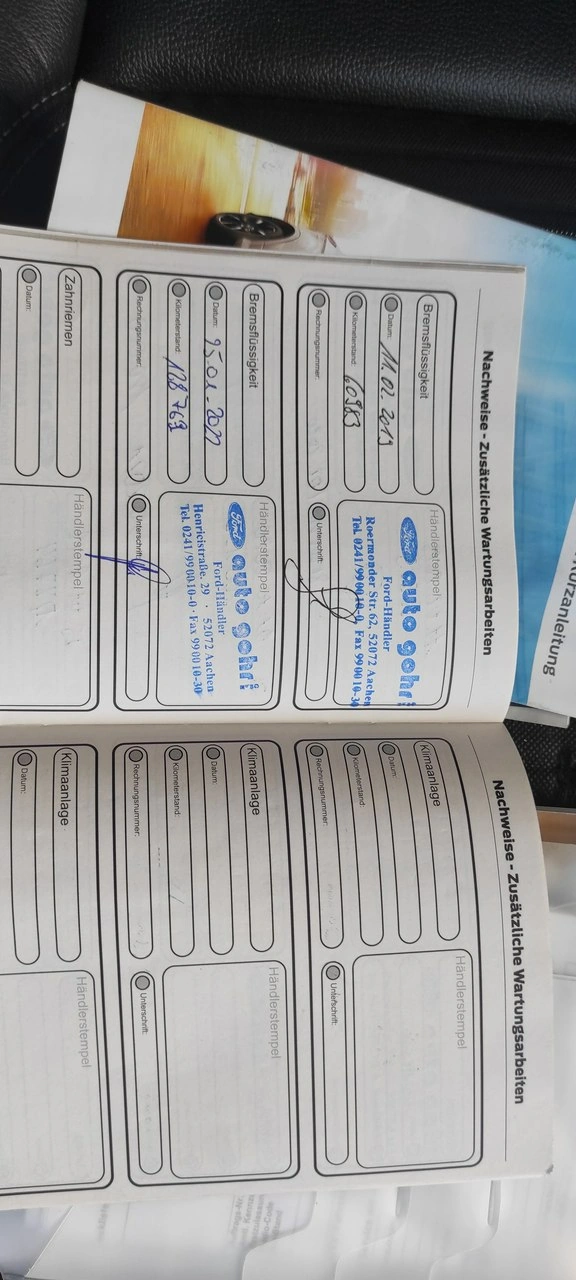 Kurzanleitung
Nachweise - Zusätzliche Wartungsarbeiten
Bremsflüssigkeit
Datum: 11.02.2019
Kilometerstand: 60983
Rechnungsnummer:
Händlerstempel
Ford auto gohr
Ford-Händler
Roermonder Str. 62, 52072 Aachen
Tel. 0241/990010-0, Fax 990010-30
Unterschrift:
Bremsflüssigkeit
Datum:
Kilometerstand: 128769
Rechnungsnummer:
Händlerstempel
Ford auto gohr
Ford-Händler
Henricistraße. 29 · 52072 Aachen
Tel. 0241/990010-0 · Fax 990010-30
Unterschrift:
Zahnriemen
Datum:
Händlerstempel
Nachweise - Zusätzliche Wartungsarbeiten
Klimaanlage
Datum:
Kilometerstand:
Rechnungsnummer:
Händlerstempel
Unterschrift:
Klimaanlage
Datum:
Kilometerstand:
Rechnungsnummer:
Händlerstempel
Unterschrift:
Klimaanlage
Datum:
Händlerstempel